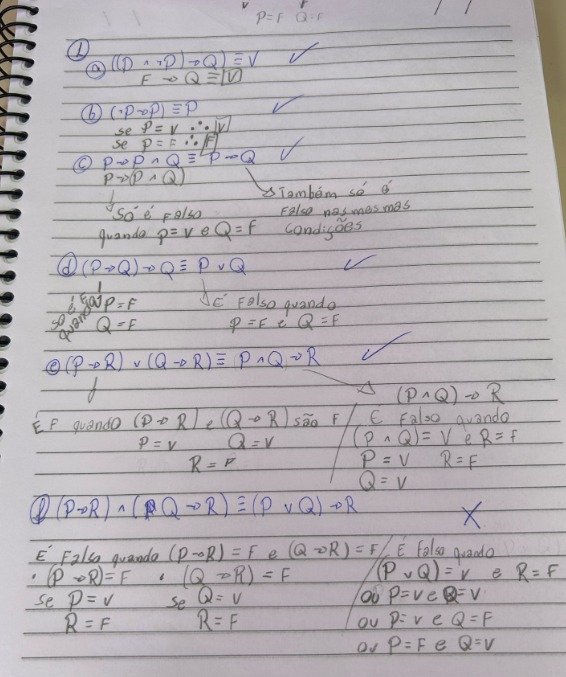 P=F Q=F
1
a) ((P ∧ ¬P) → Q) ≡ V ✓
F → Q ≡ V
b) (¬P→P) ≡ P ✓
se P = V ∴ V
se P = F ∴ F
c) P→P ∧ Q ≡ P→Q ✓
P→(P ∧ Q)
Só é Falso
quando P=V e Q=F
Também só é
Falso nas mesmas
condições
d) (P→Q)→Q ≡ P ∨ Q ✓
só é F
quando
P=F
Q=F
É Falso quando
P=F e Q=F
e) (P→R) ∨ (Q→R) ≡ P ∧ Q → R ✓
É F quando (P→R) e (Q→R) são F
P=V Q=V
R=F
(P∧Q)→R
É Falso quando
(P∧Q)=V e R=F
P=V R=F
Q=V
f) (P→R) ∧ (Q→R) ≡ (P ∨ Q)→R X
É Falso quando (P→R)=F e (Q→R)=F
• (P→R)=F • (Q→R)=F
se P=V se Q=V
R=F R=F
É Falso quando
(P∨Q)=V e R=F
ou P=V e Q=V
ou P=V e Q=F
ou P=F e Q=V